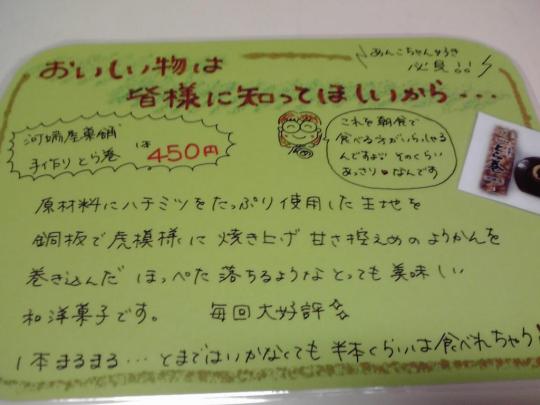 あんこちゃんずうき
必見!!
おいしい物は
皆様に知ってほしいから・・・
河端屋菓舗
手作り とら巻 1本 450円
これを朝食で
食べる方がいらっしゃる
んですよ そのくらい
あっさり なんです
原材料にハチミツをたっぷり使用した生地を
銅板で虎模様に焼き上げ甘さ控えめのようかんを
巻き込んだ ほっぺた落ちるようなとっても美味しい
和洋菓子です。 毎回大好評
1本まるまる…とまではいかなくても 半本くらいは食べれちゃう!